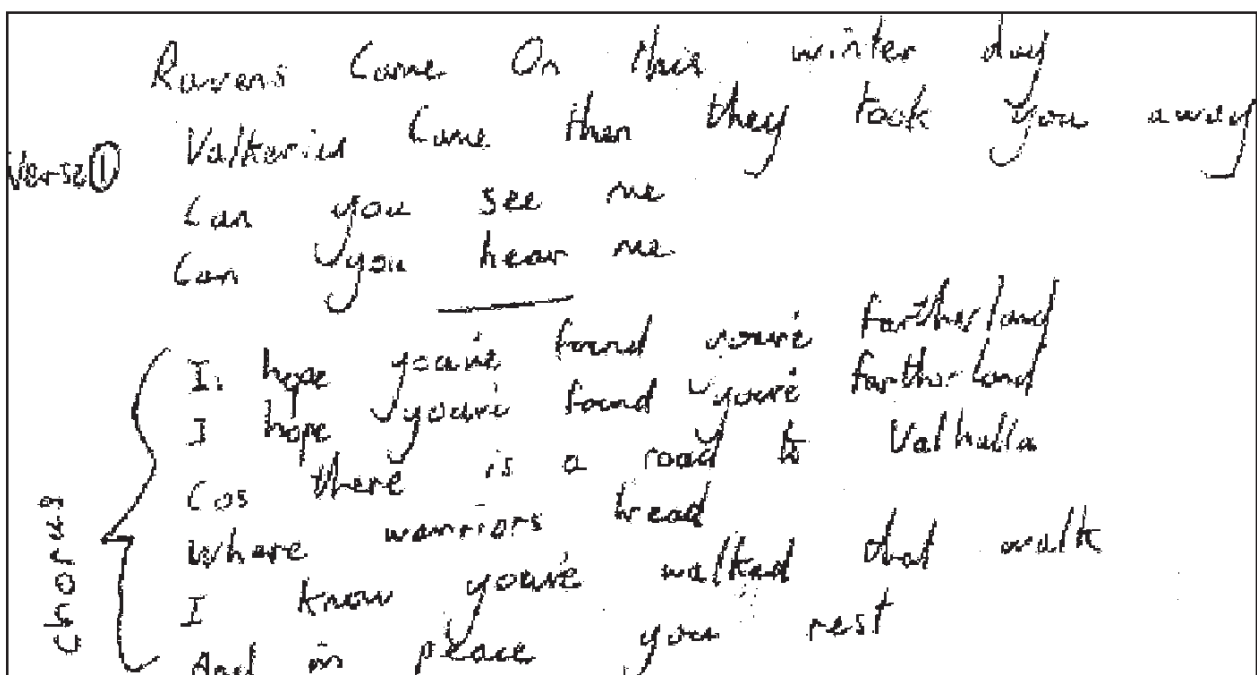 Ravens Came On this winter day
Valkeries Came then they took you away
Verse ①
Can you see me
Can you hear me
chorus
I hope you've found you're fartherland
I hope you've found you're fartherland
Cos there is a road to Valhalla
Where warriors tread
I know you've walked that walk
And in peace you rest